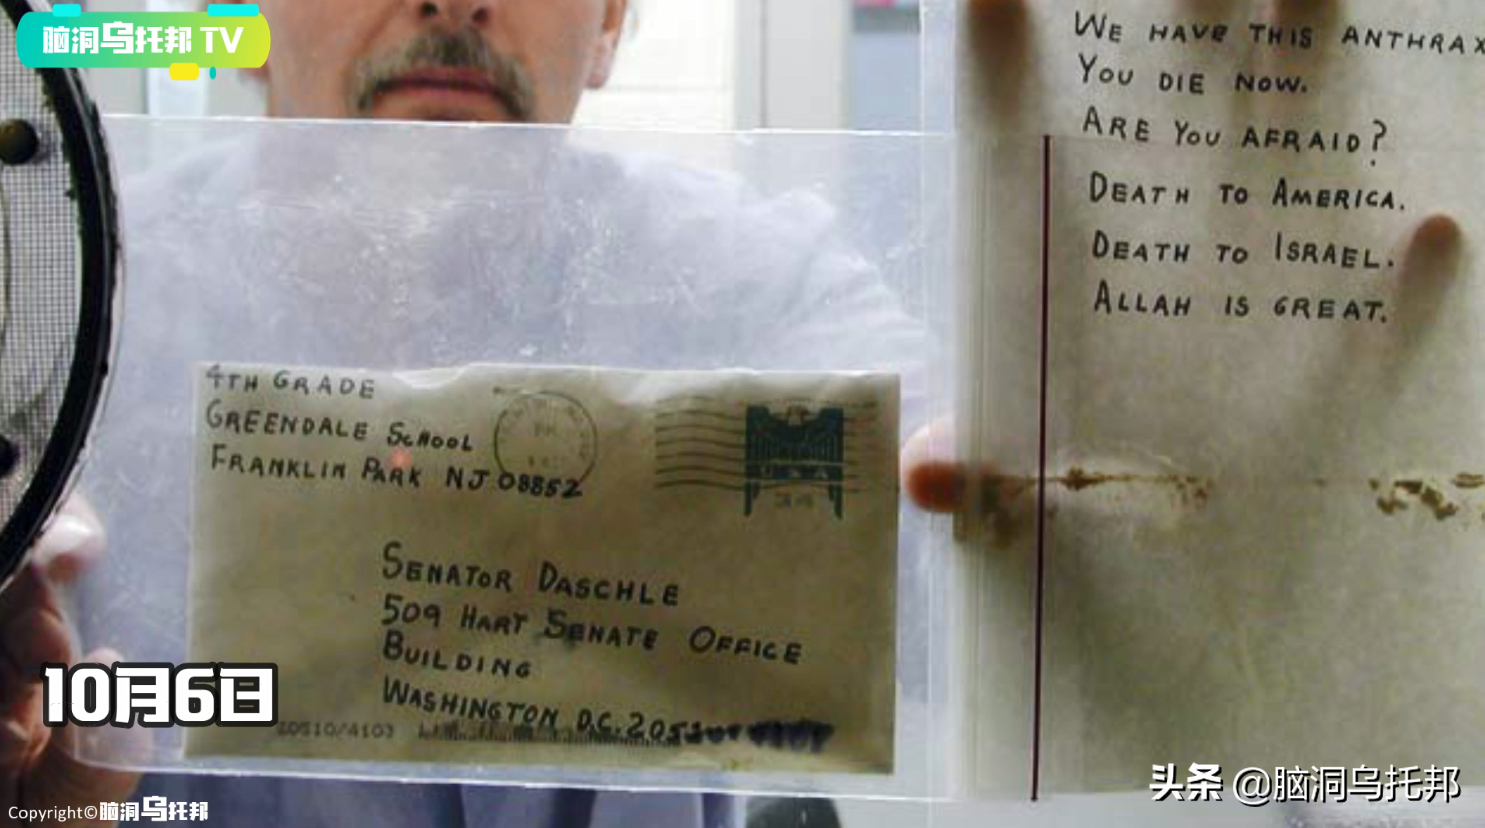 脑洞乌托邦 TV
WE HAVE THIS ANTHRAX
YOU DIE NOW.
ARE YOU AFRAID?
DEATH TO AMERICA.
DEATH TO ISRAEL.
ALLAH IS GREAT.
4TH GRADE
GREENDALE SCHOOL
FRANKLIN PARK NJ 08852
USA
34
SENATOR DASCHLE
509 HART SENATE OFFICE
BUILDING
WASHINGTON D.C. 205
20510/4103
10月6日
头条 @脑洞乌托邦
Copyright©脑洞乌托邦